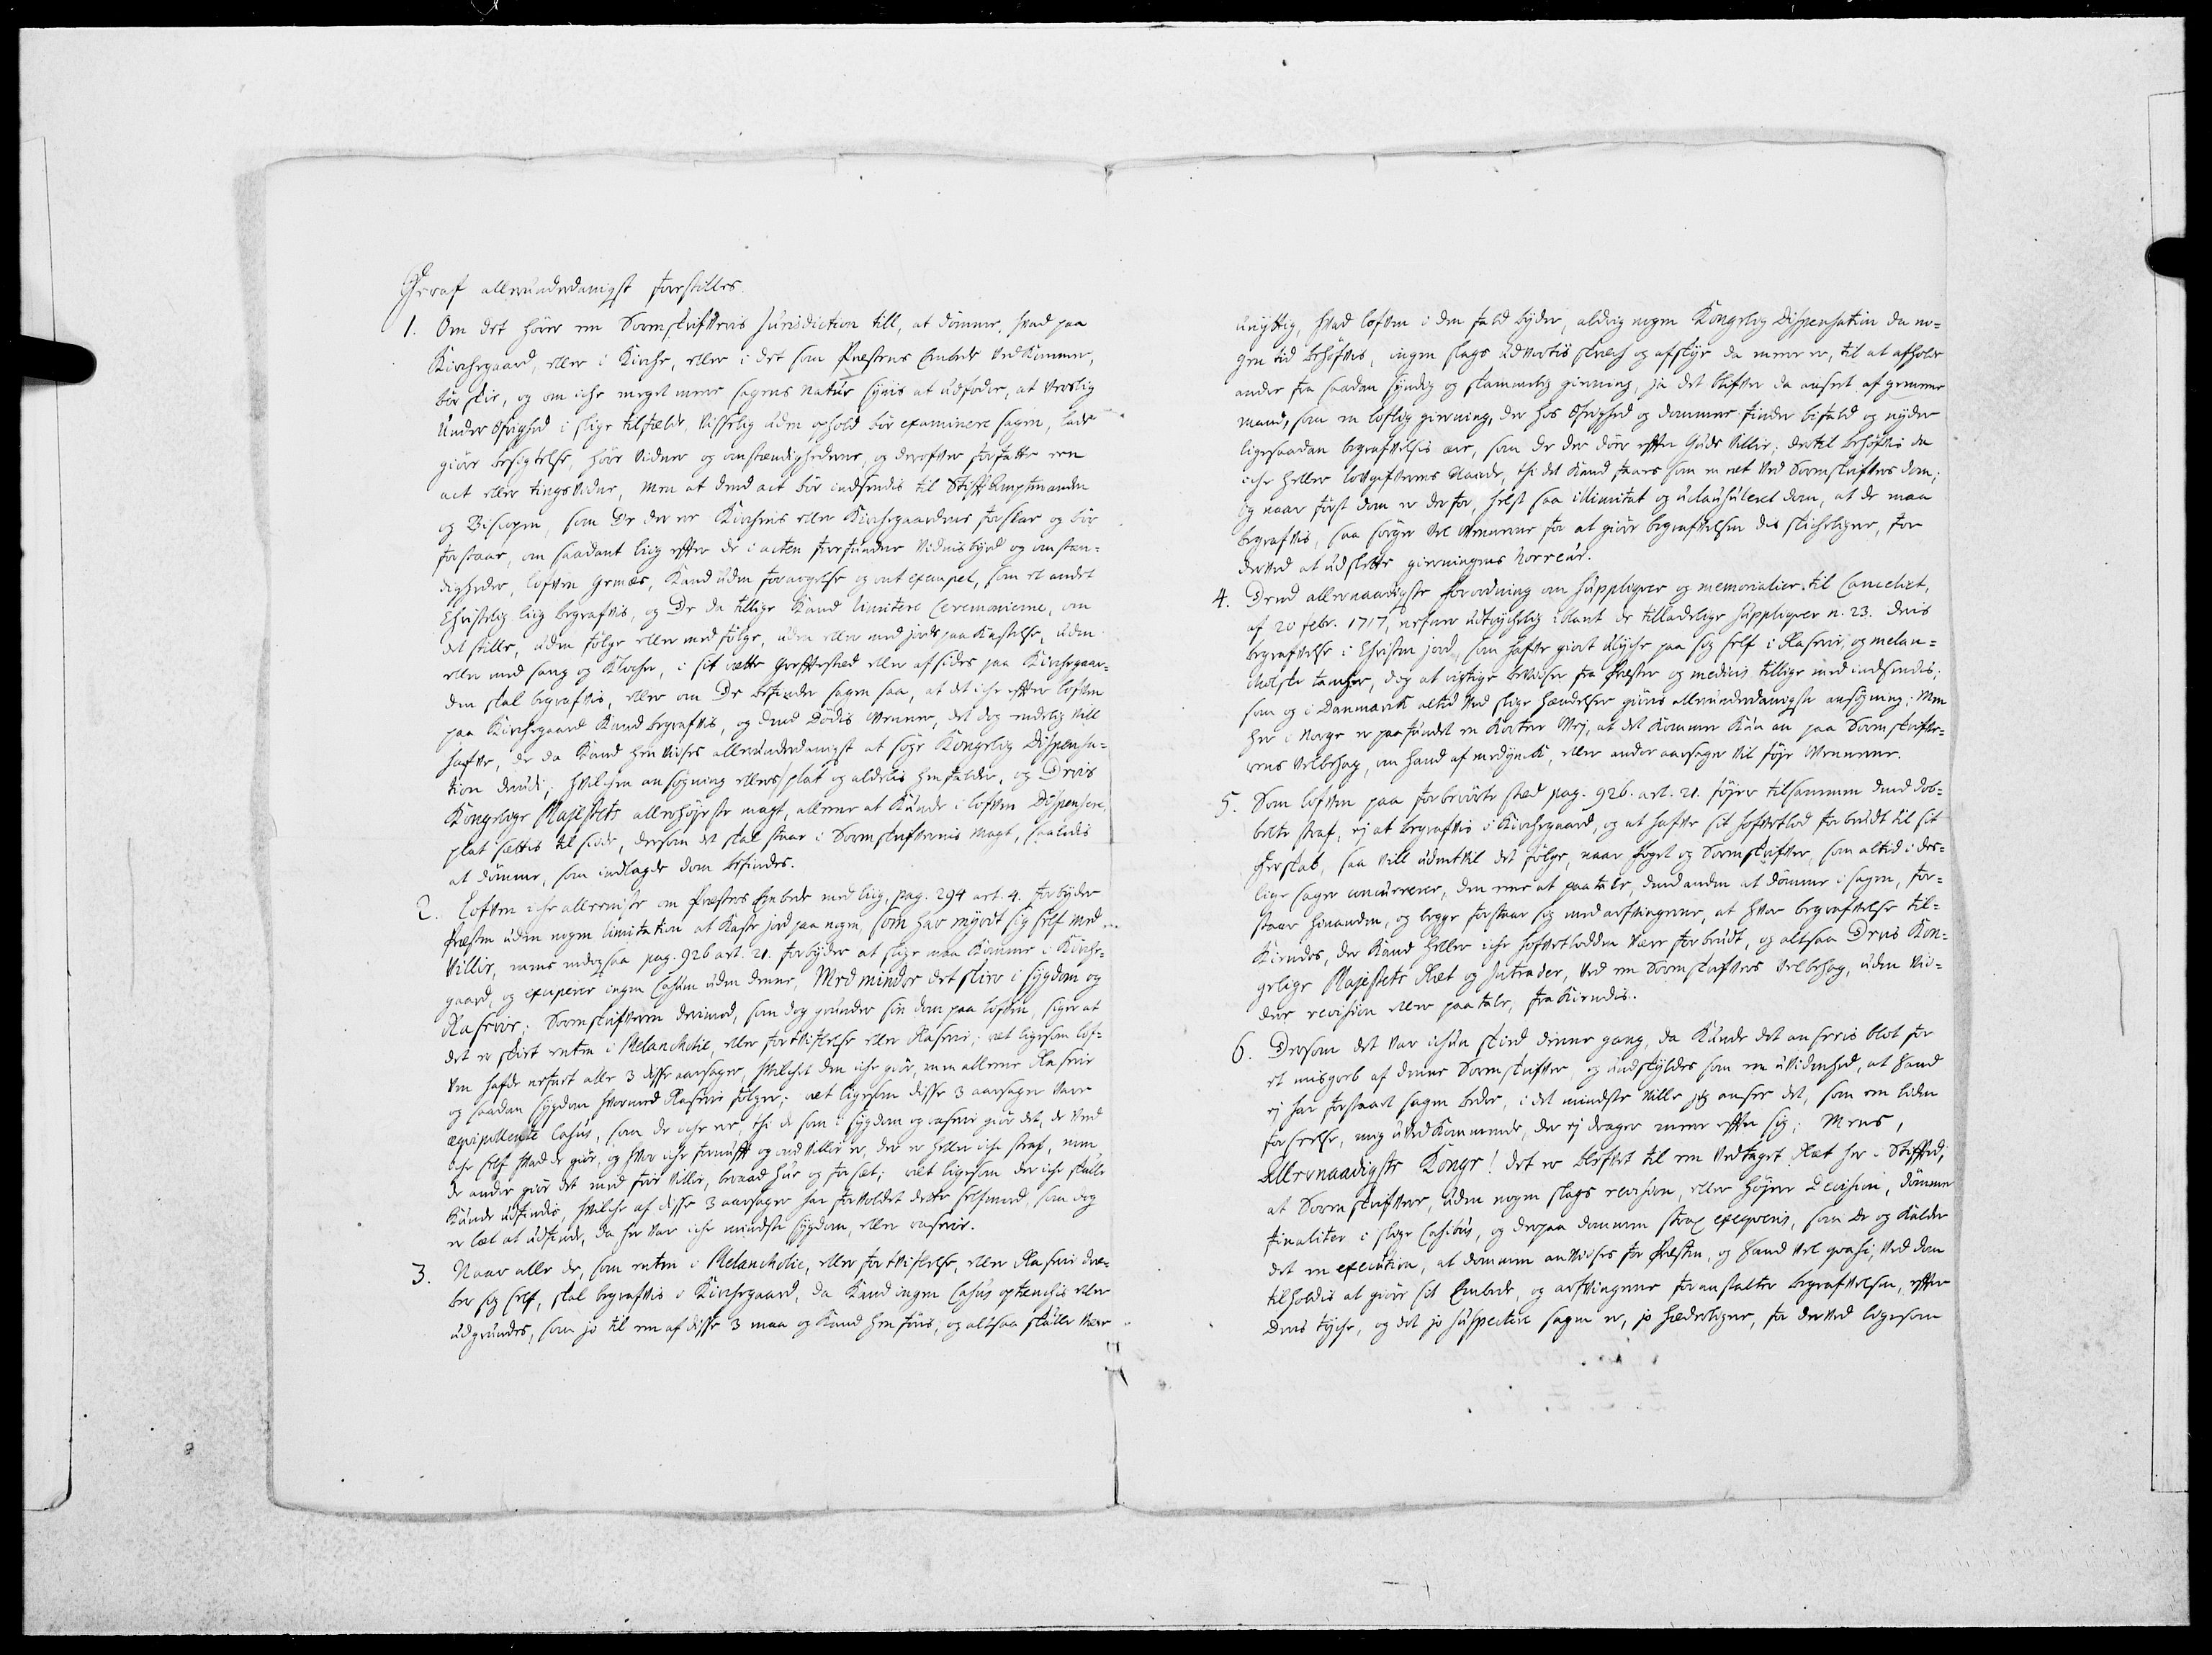 Heraf allerunderdanigst forestilles.
1. Om det hører en Sorenskrifveris Jurisdiction till, at dømme, hvad paa
Kirchegaard, eller i Kirche, eller i det som Præstens Embede vedkommer,
bør skie, og om iche meget mere sagens Natur synis at udfodre, at Verslig
Under Øfrighed i slige tilfælde, visselig uden ophold bør examinere sagen, lade
giøre besigtelse, høre vidner og omstændighederne, og derofver forfatte een
act eller tingsvidne, men at dend act bør indsendis til Stiftbemptmanden
og Biscopen, som De der er Kirchens eller Kirchegaardens forsvar og bør
forstaae, om saadant liig efter de i acten forefundne vidnisbyrd og omstæn-
digheder, lofven gemæs, kand uden forargelse og ont exempel, som et andet
Christelig liig begrafvis, og De da tillige kand limitere Ceremonierne, om
det stille, uden følge eller med følge, uden eller med jords paakastelse, uden
eller med sang og Klocher, i sit rette grafstæd eller afsides paa Kirchegaar-
den skal begrafvis, eller om De befinder sagen saa, at det iche efter lofven
paa Kirchegaard kand begrafvis, og dend Dødis Venner, det dog endelig vill
hafve, de da kand henvises allerunderdanigst at søge Kongelig Dispensa-
tion derudi; hvilchen ansøgning ellers plat og aldelis henfalder, og Deris
Kongelige Majestets allerhøjeste magt, allene at kunde i lofven Dispensere,
plat sættis til side, dersom det skal staae i Sorenskrifvernis magt, saaledis
at dømme, som indlagde dom befindes.
2. Lofven iche alleniste om Præstens Embede med liig, pag. 294 art. 4. forbyder
Præsten uden nogen limitation at kaste jord paa nogen, som har myrdt sig self med
villie, mens endogsaa pag. 926 art. 21. forbyder at slige maa komme i Kirche-
gaard, og exciperer ingen Casum uden denne, Med mindre det skeer i sygdom og
Raserie; Sorenskrifveren derimod, som dog grunder sin dom paa lofven, siger at
det er skeet enten i Melancholie, eller fortvistelse eller Raserie; ret ligesom lof-
ven hafde nefnet alle 3 disse aarsager, hvilchet den iche giør, men allene Raserie
og saadan sygdom hvormed Raserie følger; ret ligesom disse 3 aarsager vare
æqvipollente Casus, som de iche er, thi de som i sygdom og raserie giør det, de veed
iche self hvad de giør, og hvor iche fornuft og ond villie er, der er heller iche straf, men
de andre giør det med frie villie, beraad hue og forsæt; ret ligesom der iche skulle
kunde udfindis, hvilche af disse 3 aarsager har forvoldet dette selfmord, som dog
er læt at udfinde, da her var iche mindste sygdom, eller raserie.
3. Naar alle de, som enten i Melancholie, eller fortvistelse, eller Raserie dræ-
ber sig self, skal begrafvis i Kirchegaard, da kand ingen Casus optenchis eller
udgrundes, som jo til en af disse 3 maa og kand henføris, og altsaa skulle være
unyttig, hvad lofven i den fald byder, aldrig nogen Kongelig Dispensation da no-
gen tid behøfves, ingen slags udvortis skræch og afskye da mere er, til at afholde
andre fra saadan syndig og skammelig gierning, ja det blifver da anseet af gemene
mand, som en loflig gierning, der hos Øfrighed og dommere finder bifald og nyder
ligesaadan begrafvelsis ære, som de der døer efter Guds villie; dertil behøfves da
iche heller lovgifverens Naade, thi det kand faaes som en ret ved Sorenskrifvers dom;
Og naar først dom er derfor, helst saa illimitat og uclausuleret dom, at de maa
begrafvis, saa sørger vel vennerne for at giøre begrafvelsen dis skicheligere, for
derved at udslette gierningens horreur.
4. Dend allernaadigste Forordning om Suppliqver og memorialier til Canceliet,
af 20 febr. 1717, nefner udtrychelig iblant de tilladelige Suppliqver n. 23. deris
begrafvelse i Christen jord, som hafve giort ulyche paa sig self i Raserie, og melan-
cholske tancher, dog at rigtige beviiser fra Præster og medicis tillige med indsendis;
som og i Danmark altid ved slige hændelser giøres allerunderdanigste ansøgning; Men
her i Norge er paafundet en kortere Vej, at det kommer kun an paa Sorenskrifve-
rens velbehag, om hand af medynck, eller andre aarsager vil føje Vennerne.
5. Som lofven paa forberørte stæd pag. 926. art. 21. føjer tilsammen dend dob-
belte straf, ej at begrafvis i Kirchegaard, og at hafve sit hofvetlod forbrudt til sit
Herskab, saa vill udentvil det følge, naar foget og Sorenskrifver, som altid i des-
lige sager concurrerer, den ene at paatale, dend anden at dømme i sagen, for-
staar hinanden, og begge forstaar sig med arfvingerne, at hvor begrafvelse til-
kiendes, der kand heller iche hofvetlodden være forbrudt, og altsaa Deris Kon-
gelige Majestets Ret og Intrader, ved en Sorenskrifvers velbehag, uden vie-
dere revision eller paatale, frakiendis.
6. Dersom det var ichun skeed denne gang, da kunde det ansees blot for
et misgreb af denne Sorenskrifver, og undskyldes som en uvidenhed, at hand
ej har forstaaet sagen bedre, i det mindste ville jeg ansee det, som en liden
forseelse, mig uvedkommende, der ej drager mere efter sig; Mens,
Allernaadigste Konge! det er blefvet til en vedtaget Ret her i Stiftet,
at Sorenskrifvere, uden nogen slags revision, eller højere Decision, dømmer
finaliter i slige Casibus, og derpaa dommen strax exeqveris, som de og kalder
det en execution, at dommen anviises for Præsten, og hand vel qvasi, ved dom
tilholdis at giøre sit Embede, og arfvingerne foranstalter begrafvelsen, efter
Deris tyche, og det jo suspectere sagen er, jo hæderligere, for derved ligesom